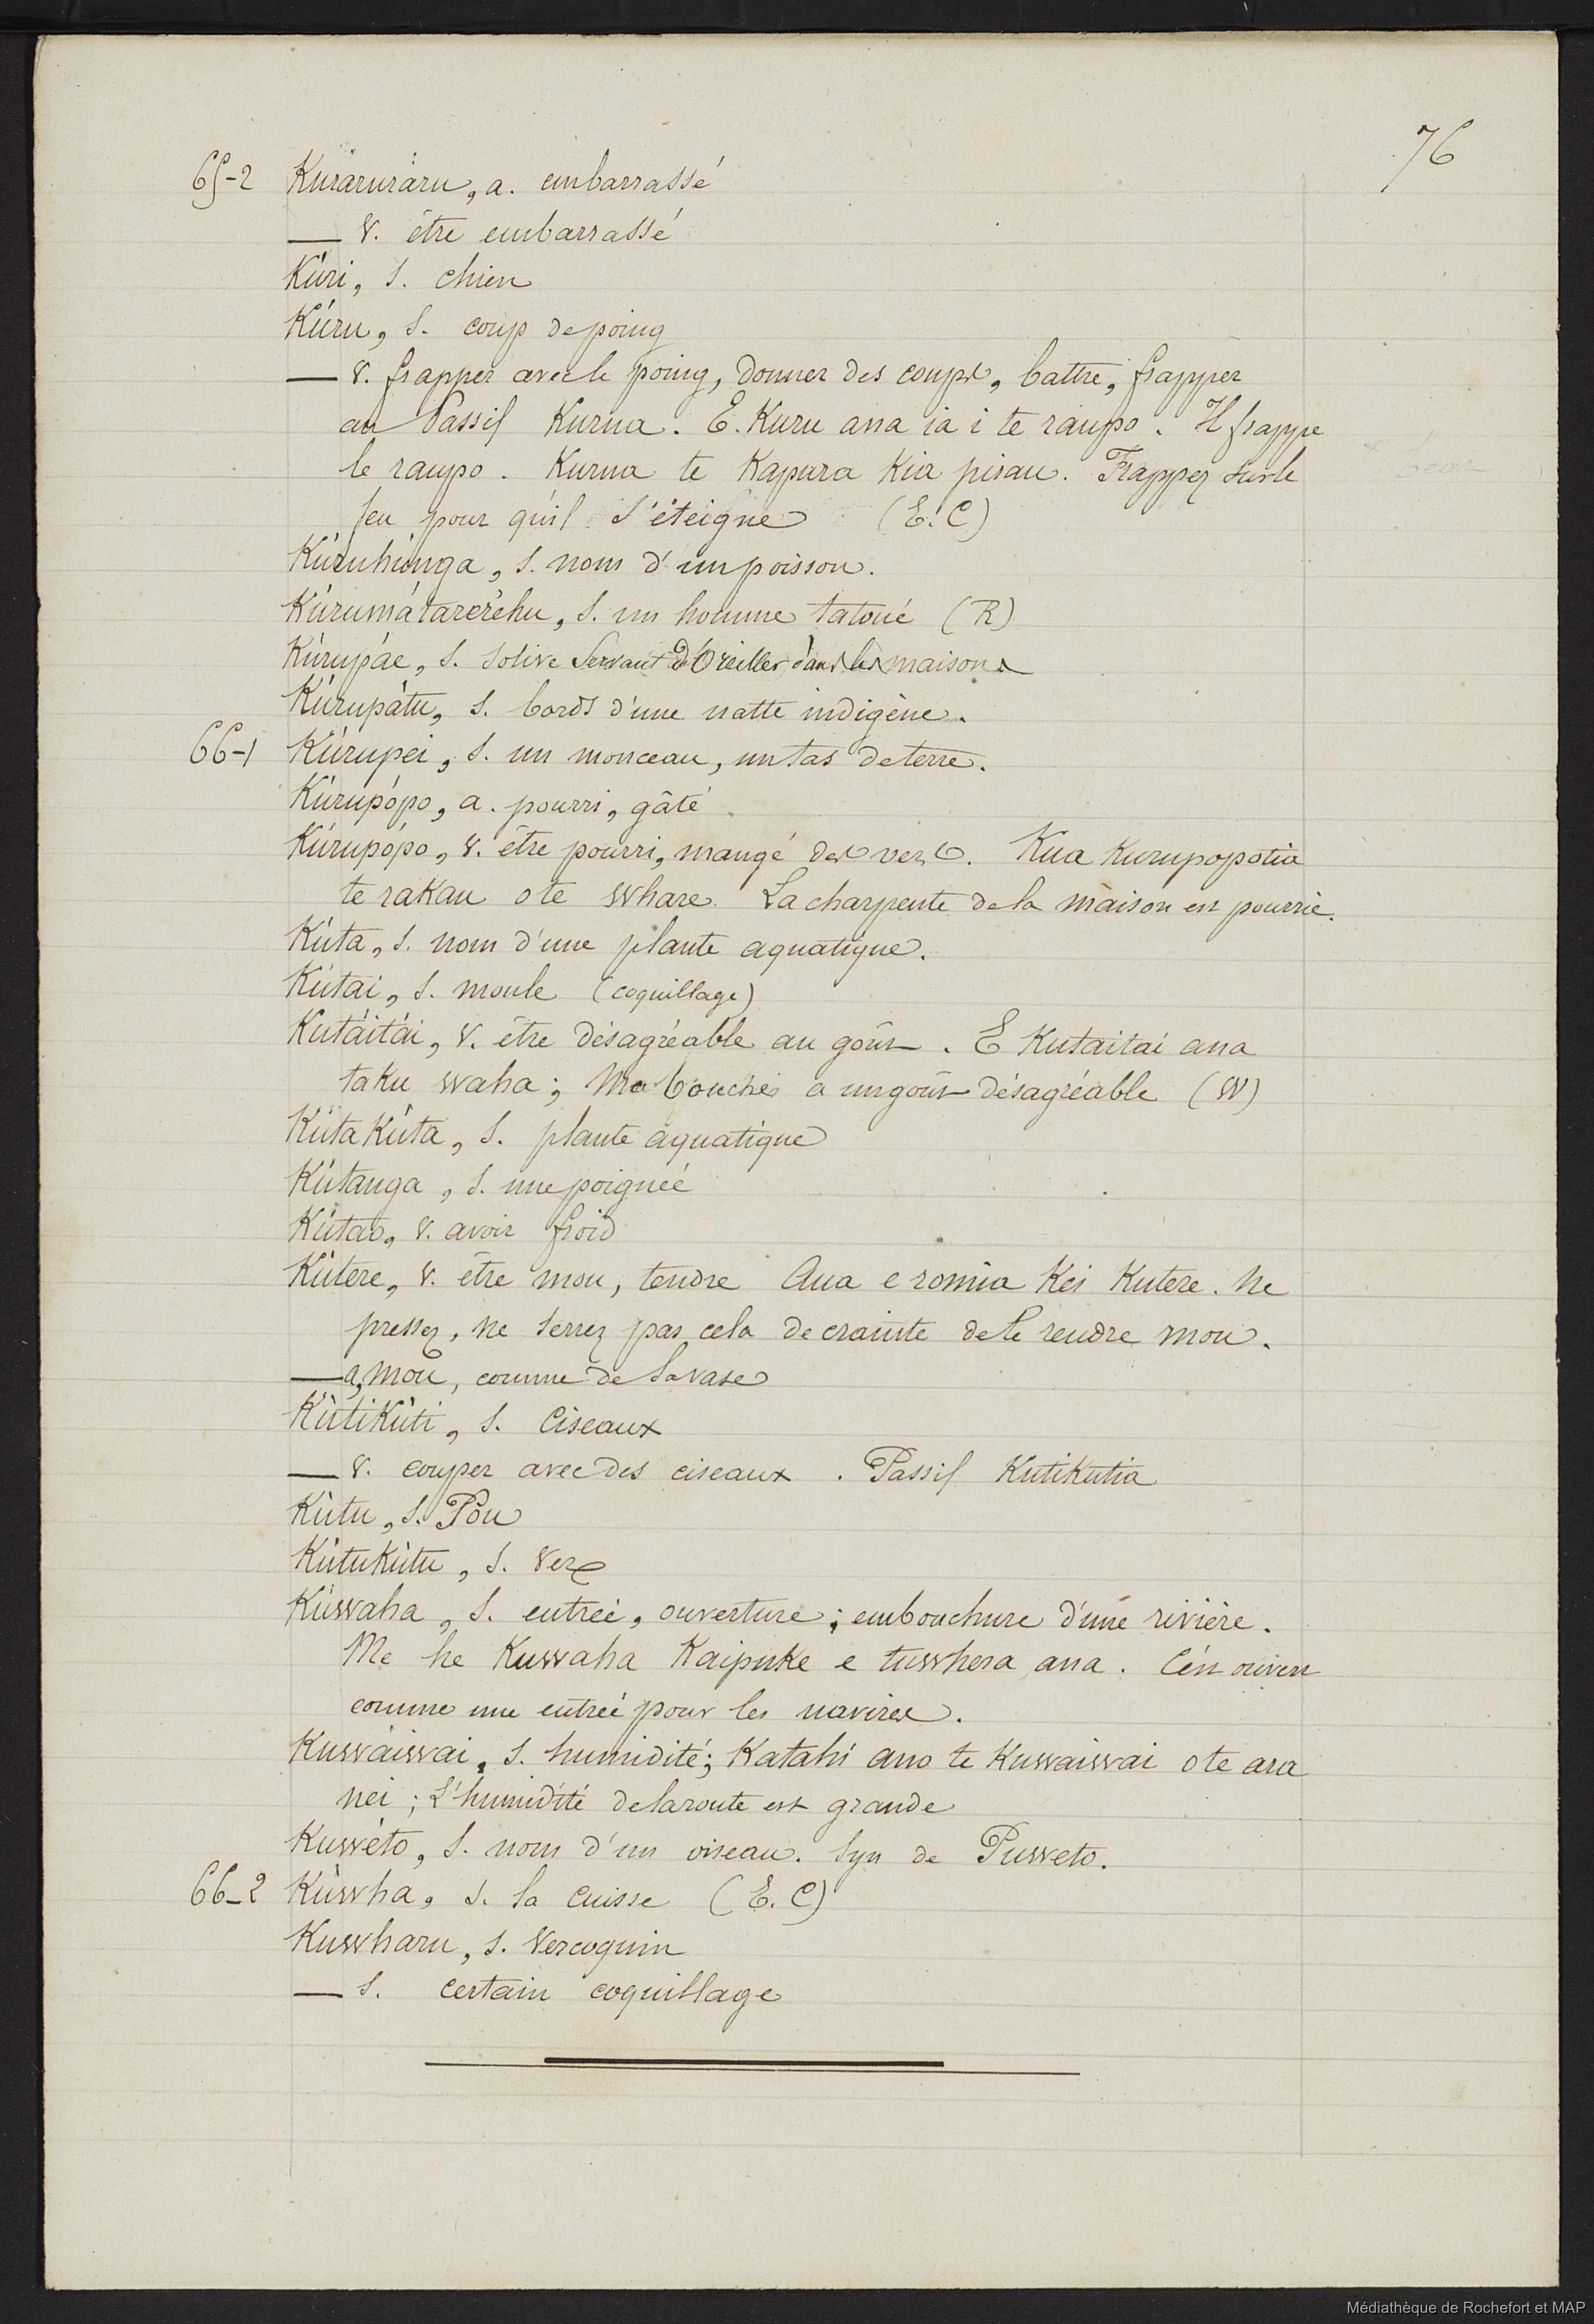 76
65-2 Kúráruráru, a. embarrassé
— v. être embarrassé
Kúri, s. chien
Kúru, s. coup de poing
— v. frapper avec le poing, donner des coups, battre, frapper
au Passif Kurua. E. Kuru ana ia i te raupo. Il frappe
le raupo. Kurua te Kapura Kia pirau. Frappez sur le
feu pour qu'il s'éteigne (E. C)
Kúruhúnga, s. nom d'un poisson.
Kúrumátarérehu, s. un homme tatoué (R)
Kúrupáe, s. solive servant d'Oreiller dans les maisons
Kúrupátu, s. bords d'une natte indigène.
66-1 Kúrupei, s. un monceau, un tas de terre.
Kúrupópo, a. pourri, gâté
Kúrupópo, v. être pourri, mangé des vers. Kua Kurupopotia
te rakau o te whare. La charpente de la maison est pourrie.
Kúta, s. nom d'une plante aquatique.
Kútai, s. moule (coquillage)
Kutáitái, v. être désagréable au goût. E Kutaitai ana
taku waha; Ma bouche a un goût désagréable (W)
Kúta Kúta, s. plante aquatique
Kútanga, s. une poignée
Kútao, v. avoir froid
Kútere, v. être mou, tendre Aua e romia Kei Kutere. Ne
pressez, ne serrez pas cela de crainte de le rendre mou.
— a, mou, comme de la vase
KútiKúti, s. Ciseaux
— v. couper avec des ciseaux. Passif Kutikutia
Kútu, s. Pou
Kútukútu, s. Vers
Kúwaha, s. entrée, ouverture; embouchure d'une rivière.
Me he Kuwaha Kaipuke e tuwhera ana. C'est ouvert
comme une entrée pour les navires.
Kuwáiwai, s. humidité; Katahi ano te Kuwaiwai o te ara
nei; L'humidité de la route est grande
Kuwéto, s. nom d'un oiseau. Syn de Puweto.
66-2 Kúwha, s. la Cuisse (E. C)
Kuwharu, s. Vercoquin
— s. certain coquillage
Médiathèque de Rochefort et MAP